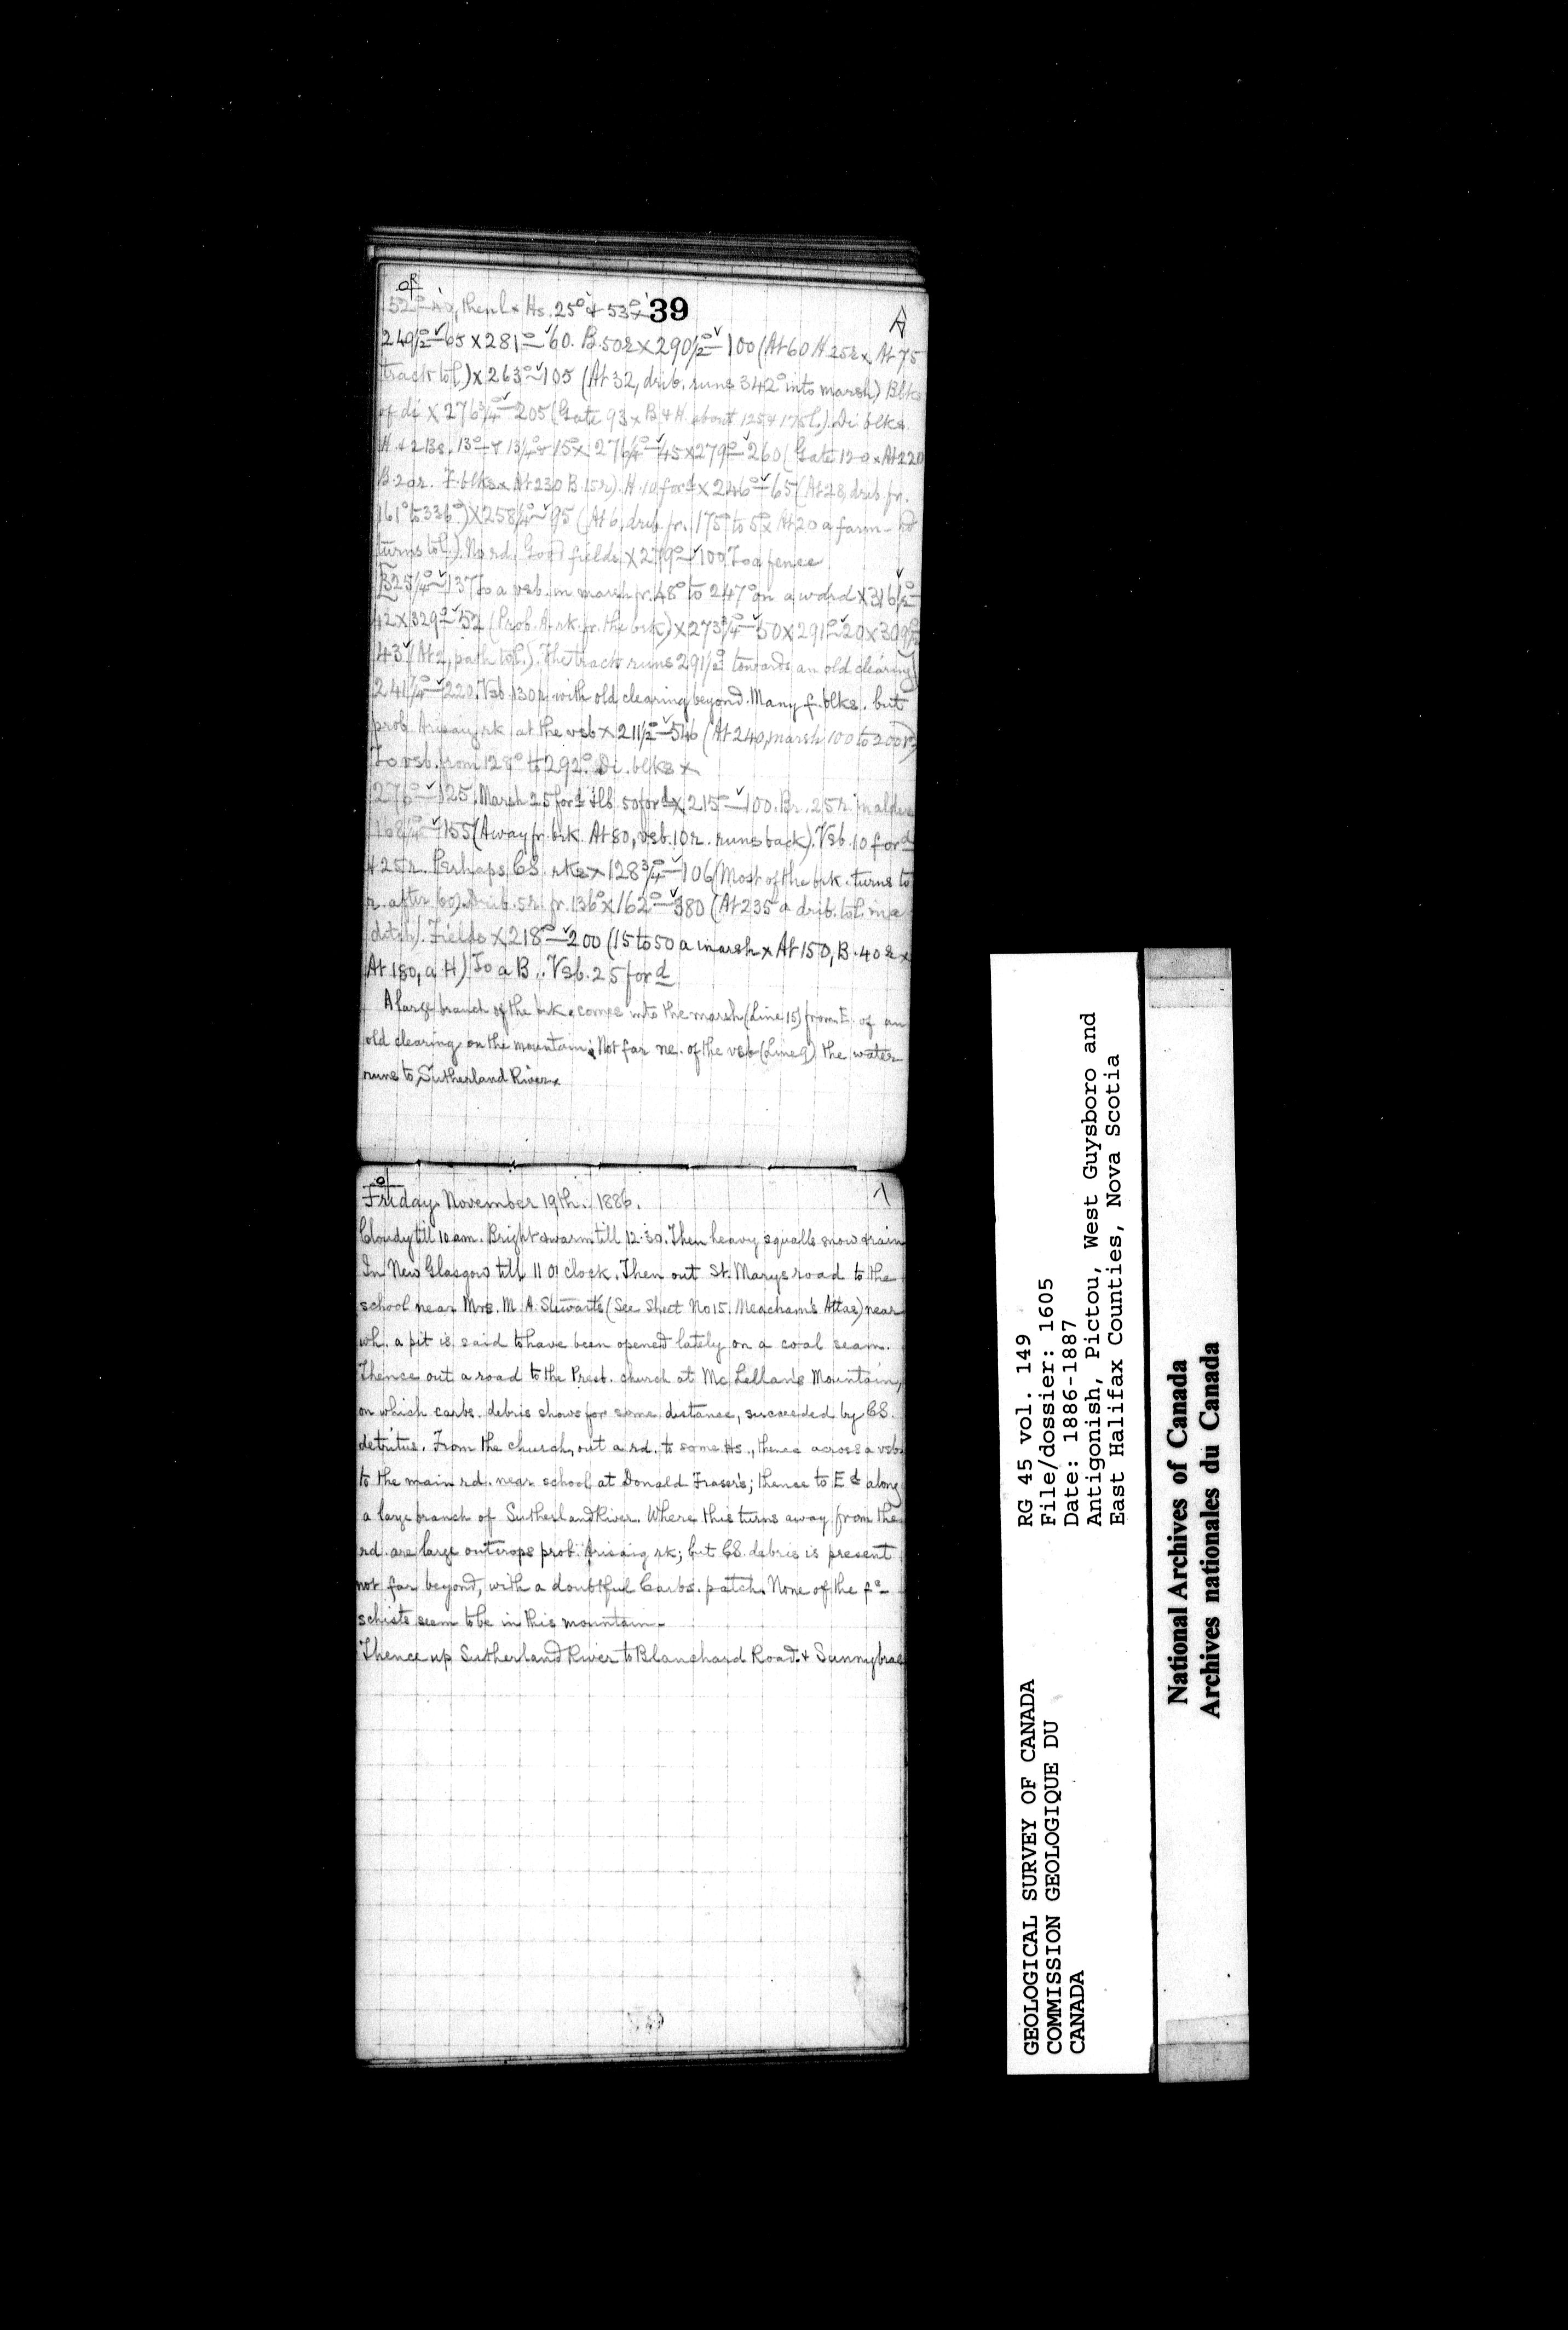 39
249½°–65 x 281°–60. B. 50r x 290½°–100 (At 60 H 25r x At 75
track to l.) x 263°–105 (At 32, drib. runs 342° into marsh) Blks
of di x 276¾°–205 (Gate 93 x B & H. about 125 & 175 l.). Di blks.
276¼°–45 x 279°–260 (Gate 120 x At 220
B. 20r. F. blks x At 230 B. 15r). H. 10 for d x 246°–65 (At 28, drib. fr.
161° to 336°) x 258¼°–95 (At 6, drib. fr. 175° to 5° x At 20 a farm-rd
turns to l.). No rd. Good fields x 279°–100 To a fence
325¼°–137 To a vsb. in marsh fr. 48° to 247° on a wdrd x 316½°–
42 x 329°–52 (Prob. A. rk. fr. the brk) x 273¾°–50 x 291°–20 x 309½°
43 (At 2, path to l.). The track runs 291½° towards an old clearing
241¼°–220. Vsb. 130r with old clearing beyond. Many f. blks. but
prob. Arisaig rk at the vsb x 211½°–546 (At 240, marsh 100 to 200 r)
To vsb. from 128° to 292°. Di. blks x
125. Marsh 25 for d 50 for d x 215°–100. Br. 25r. in alders
168¼°–155 (Away fr. brk. At 80, vsb. 10r. runs back). Vsb. 10 for d
& 25r. Perhaps CS. rks x 128¾°–106 (Most of the brk. turns to
r. after 60). Drib. 5r. fr. 136° x 162°–380 (At 235 a drib. to l. in a
ditch). Fields x 218°–200 (15 to 50 a marsh x At 150, B. 40 r x
At 180, a H) To a B.. Vsb. 25 for d
A large branch of the brk. comes into the marsh (Line 15) from E. of an
old clearing on the mountain. Not far ne. of the vsb (Line 9) the water
runs to Sutherland River x
Friday November 19th. 1886.
Cloudy till 10 am. Bright & warm till 12.30. Then heavy squalls snow & rain
In New Glasgow till 11 O'clock. Then out St. Marys road to the
school near Mrs. M. A. Stewarts (See Sheet No 15. Meacham's Atlas) near
wh. a pit is said to have been opened lately on a coal seam.
Thence out a road to the Presb. church at McLellan's Mountain,
on which carbs. debris shows for some distance, succeeded by CS.
detritus. From the church, out a rd. to some Hs., thence across a vsb.
to the main rd. near school at Donald Fraser's; thence to Ed along
a large branch of Sutherland River. Where this turns away from the
rd. are large outcrops prob. Arisaig rk; but CS. debris is present
not far beyond, with a doubtful Carbs. patch. None of the fe-
schists seem to be in this mountain.
Thence up Sutherland River to Blanchard Road & Sunnybrae
GEOLOGICAL SURVEY OF CANADA
COMMISSION GEOLOGIQUE DU
CANADA
RG 45 vol. 149
File/dossier: 1605
Date: 1886-1887
Antigonish, Pictou, West Guysboro and
East Halifax Counties, Nova Scotia
National Archives of Canada
Archives nationales du Canada